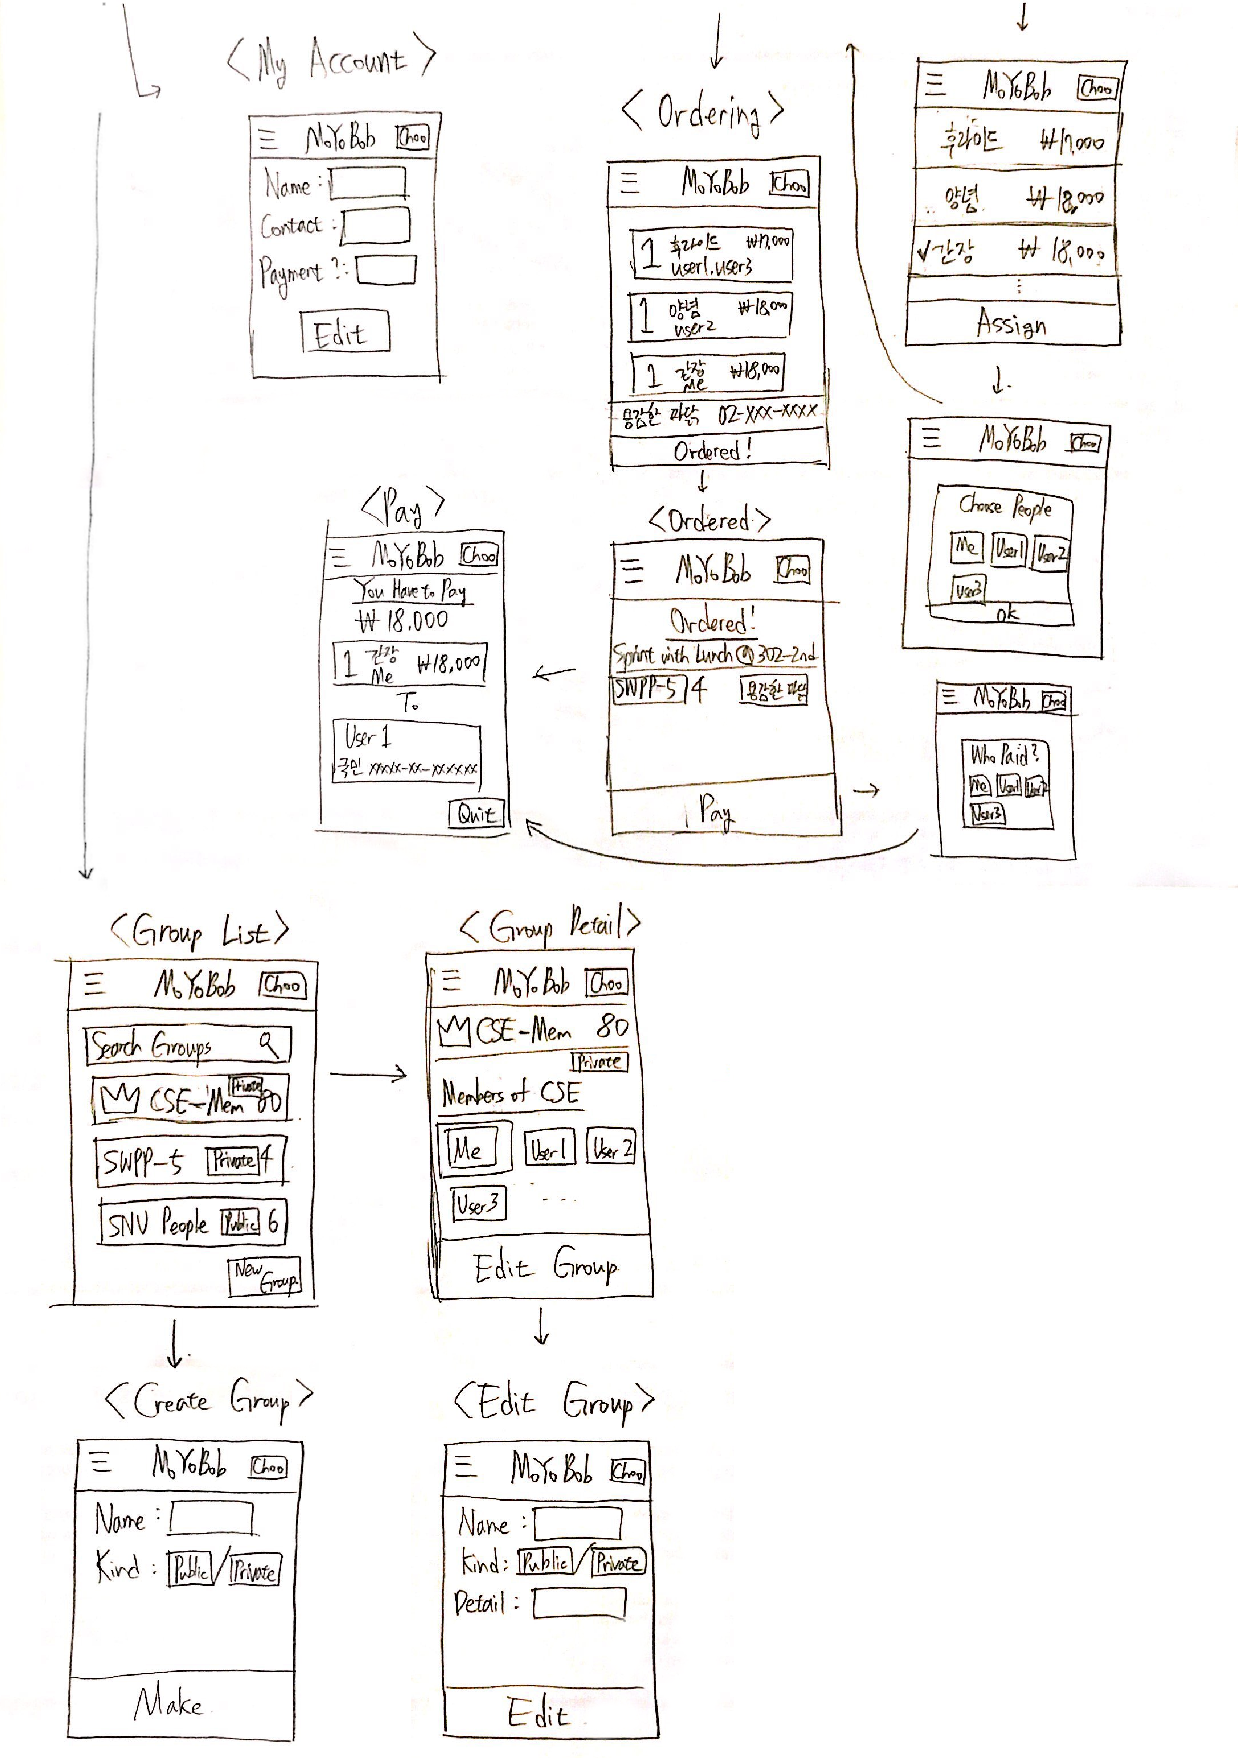 <My Account>
MoYoBob Choo
Name :
Contact :
Payment ? :
Edit
<Ordering>
MoYoBob Choo
1 후라이드 ₩17,000
user1, user3
1 양념 ₩18,000
user2
1 간장 ₩18,000
Me
용감한 파닭 02-XXX-XXXX
Ordered!
MoYoBob Choo
후라이드 ₩17,000
양념 ₩18,000
✓간장 ₩18,000
⋮
Assign
MoYoBob Choo
Choose People
Me User1 User2
User3
OK
<Pay>
MoYoBob Choo
You Have to Pay
₩18,000
1 간장 ₩18,000
Me
To
User 1
국민 xxxxx-xx-xxxxxx
Quit
<Ordered>
MoYoBob Choo
Ordered!
Sprint with Lunch @ 302-2nd
SWPP-5 4 용감한 파닭
Pay
MoYoBob Choo
Who Paid?
Me User1 User2
User3
<Group List>
MoYoBob Choo
Search Groups
CSE-Mem Private 80
SWPP-5 Private 4
SNU People Public 6
New Group
<Group Detail>
MoYoBob Choo
CSE-Mem 80
Private
Members of CSE
Me User1 User2
User3 ....
Edit Group
<Create Group>
MoYoBob Choo
Name :
Kind : Public / Private
Make
<Edit Group>
MoYoBob Choo
Name :
Kind : Public / Private
Detail :
Edit